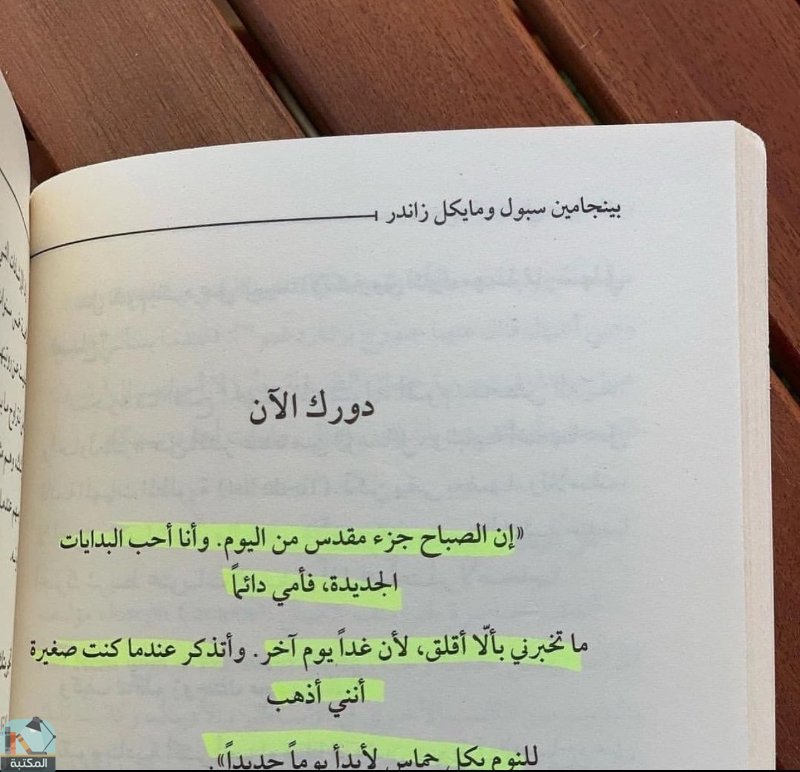 بينجامين سبول ومايكل زاندر
دورك الآن
«إن الصباح جزء مقدس من اليوم. وأنا أحب البدايات
الجديدة، فأمي دائماً
ما تخبرني بألّا أقلق، لأن غداً يوم آخر. وأتذكر عندما كنت صغيرة
أنني أذهب
للنوم بكل حماس لأبدأ يوماً جديداً».
المكتبة